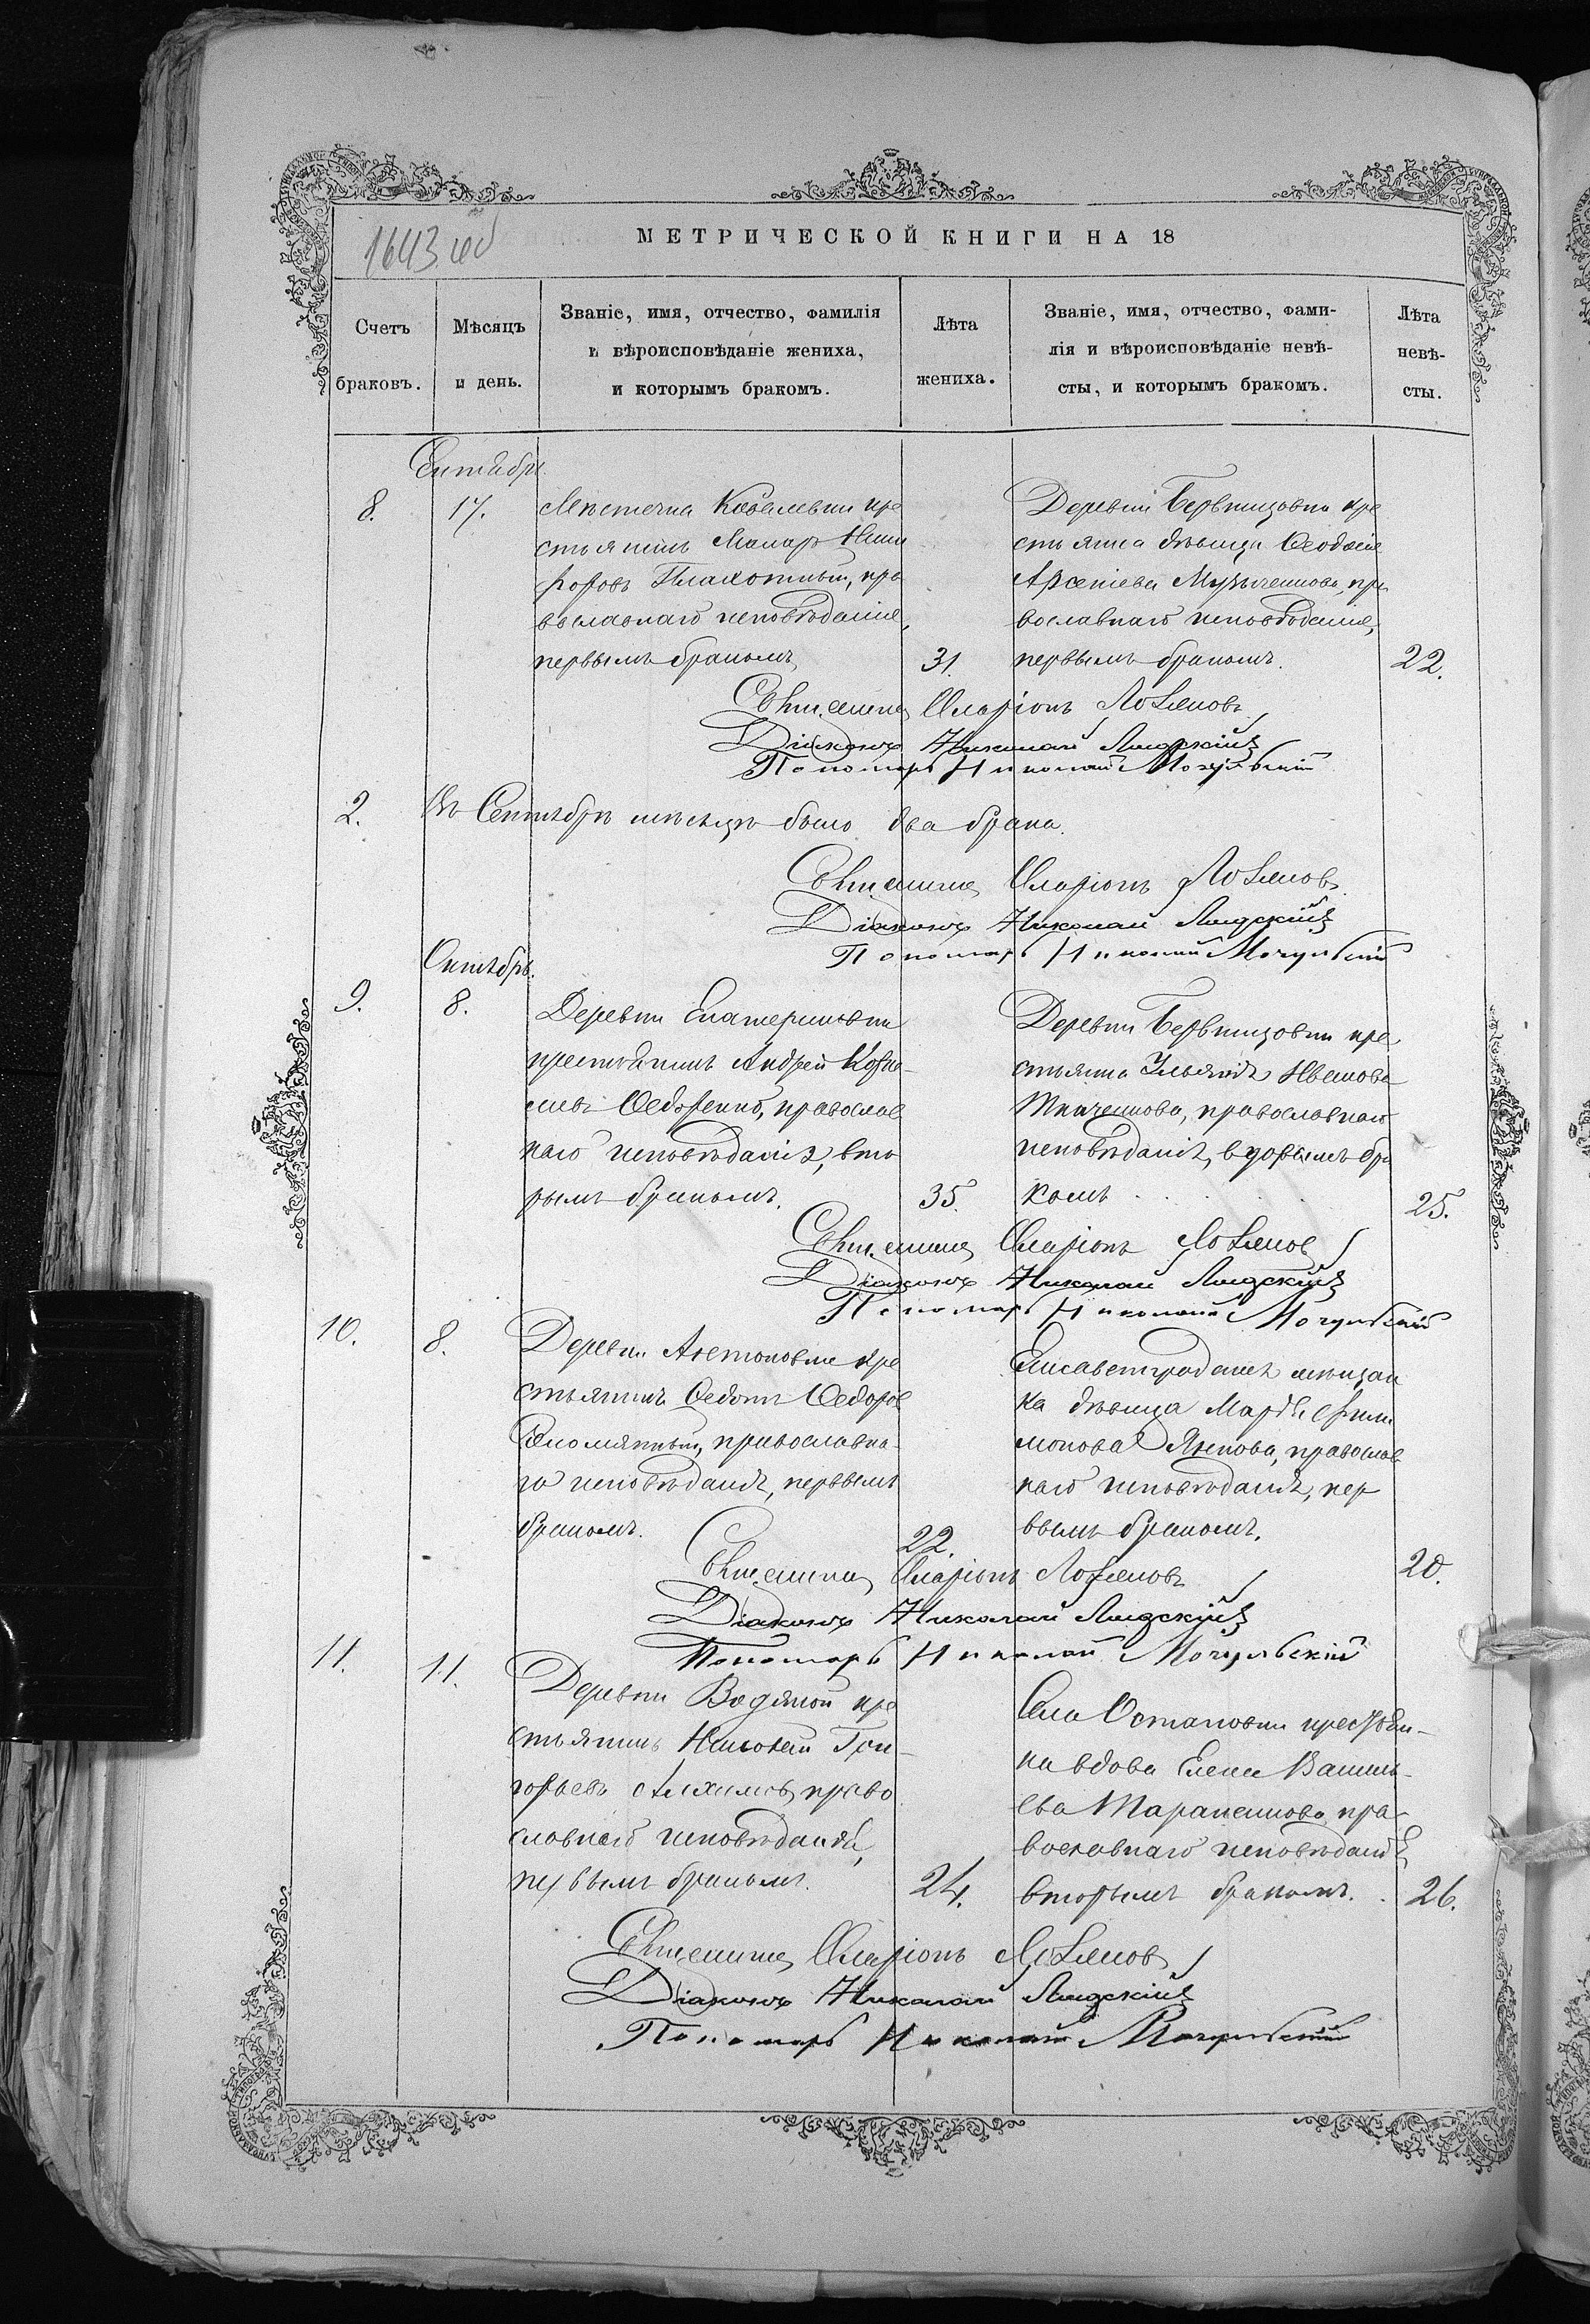 1643 об
МЕТРИЧЕСКОЙ КНИГИ НА 18
Счетъ браковъ.
Мѣсяцъ и день.
Званіе, имя, отчество, фамилія
и вѣроисповѣданіе жениха,
и которымъ бракомъ.
Лѣта жениха.
Званіе, имя, отчество, фами-
лія и вѣроисповѣданіе невѣ-
сты, и которымъ бракомъ.
Лѣта невѣ-
сты.
Сентябрь.
8.
17.
Мѣстечка Ковалевки кре
стьянинъ Макар Ники
форовъ Плахотный, пра
вославнаго исповѣданія,
первымъ бракомъ,
31.
Деревни кре
стьянка дѣвица Феодосія
Арсеніева Музыченкова, пра
вославнаго исповѣданія,
первымъ бракомъ.
22.
Священникъ Иларіонъ
Діаконъ Николай Лидскій
Пономарь Николай Мочульскій
2.
Въ Сентябрѣ мѣсяцѣ было два брака.
Священникъ Иларіонъ
Діаконъ Николай Лидскій
Пономарь Николай Мочульскій
Октябрь.
9.
8.
Деревни Екатериновки
крестьянинъ Андрей
Федоренко, православ
наго исповѣданія, вто
рымъ бракомъ.
35.
Деревни кре
стьянка Иванова
Ткаченкова, православнаго
исповѣданія, вторымъ бра
комъ
25.
Священникъ Иларіонъ
Діаконъ Николай Лидскій
Пономарь Николай Мочульскій
10.
8.
Деревни Антоновки кре
стьянинъ Федотъ Федоров
православна
го исповѣданія, первымъ
бракомъ.
22.
Елисаветградская мѣщан
ка дѣвица Марѳа Фили
монова православ
наго исповѣданія, пер
вымъ бракомъ.
20.
Священникъ Иларіонъ
Діаконъ Николай Лидскій
Пономарь Николай Мочульскій
11.
11.
Деревни Водяной кре
стьянинъ Гри
горьевъ право
славнаго исповѣданія,
первымъ бракомъ.
24.
Села Остаповки крестьян-
ка вдова Елена Василь
ева Тараненкова пра-
вославнаго исповѣданія,
вторымъ бракомъ.
26.
Священникъ Иларіонъ
Діаконъ Николай Лидскій
Пономарь Николай Мочульскій